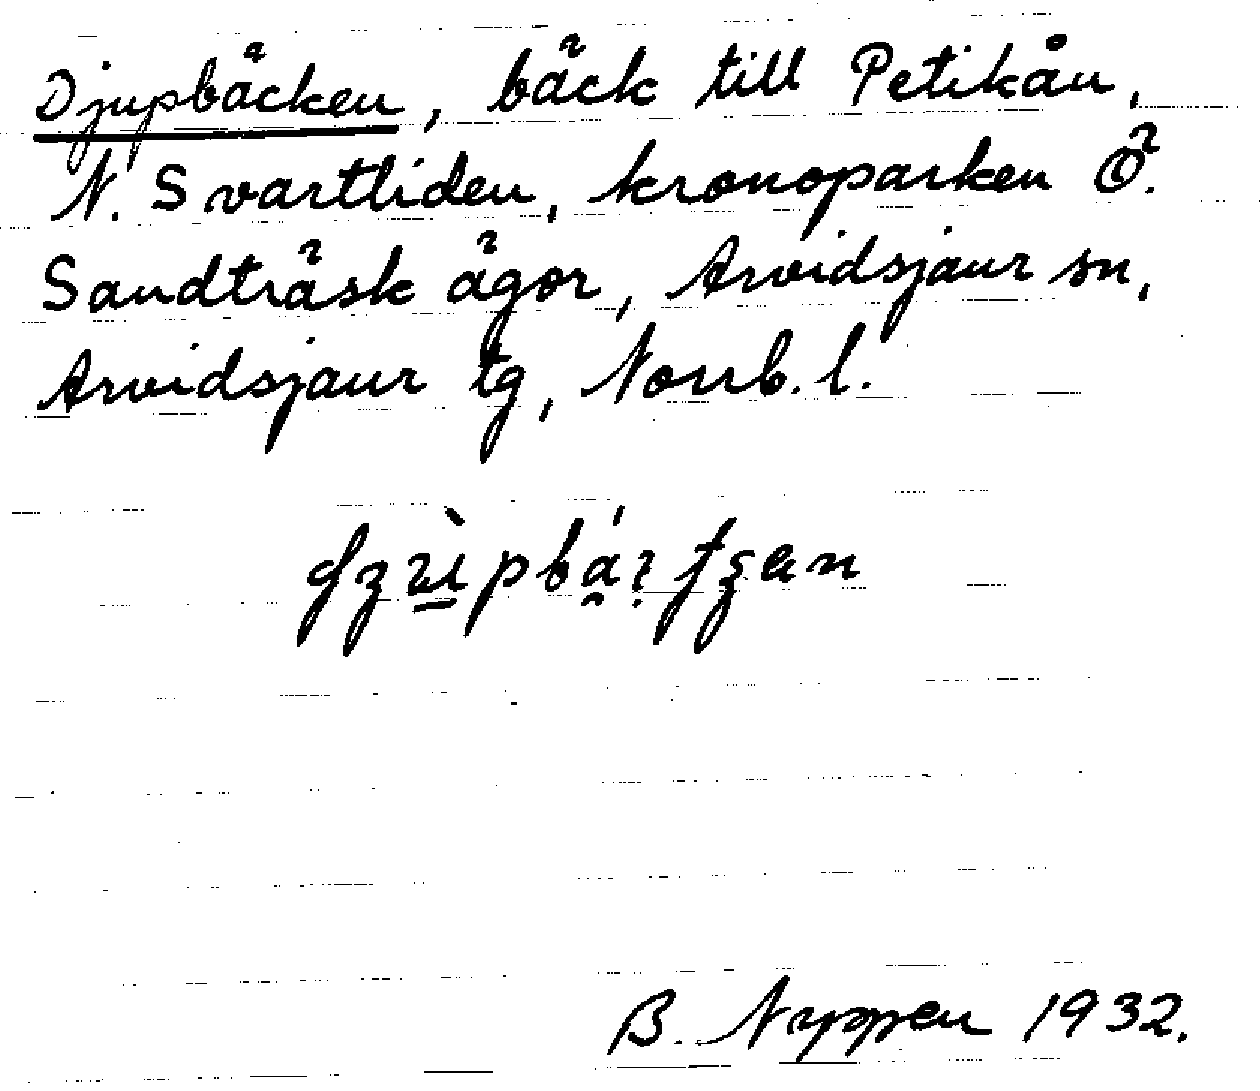 Djupbäcken, bäck till Petikån,
N. Svartliden, kronoparken Ö.
Sandträsk ägor, Arvidsjaur sn,
Arvidsjaur tg, Norrb. l.
B. Nyppen 1932.